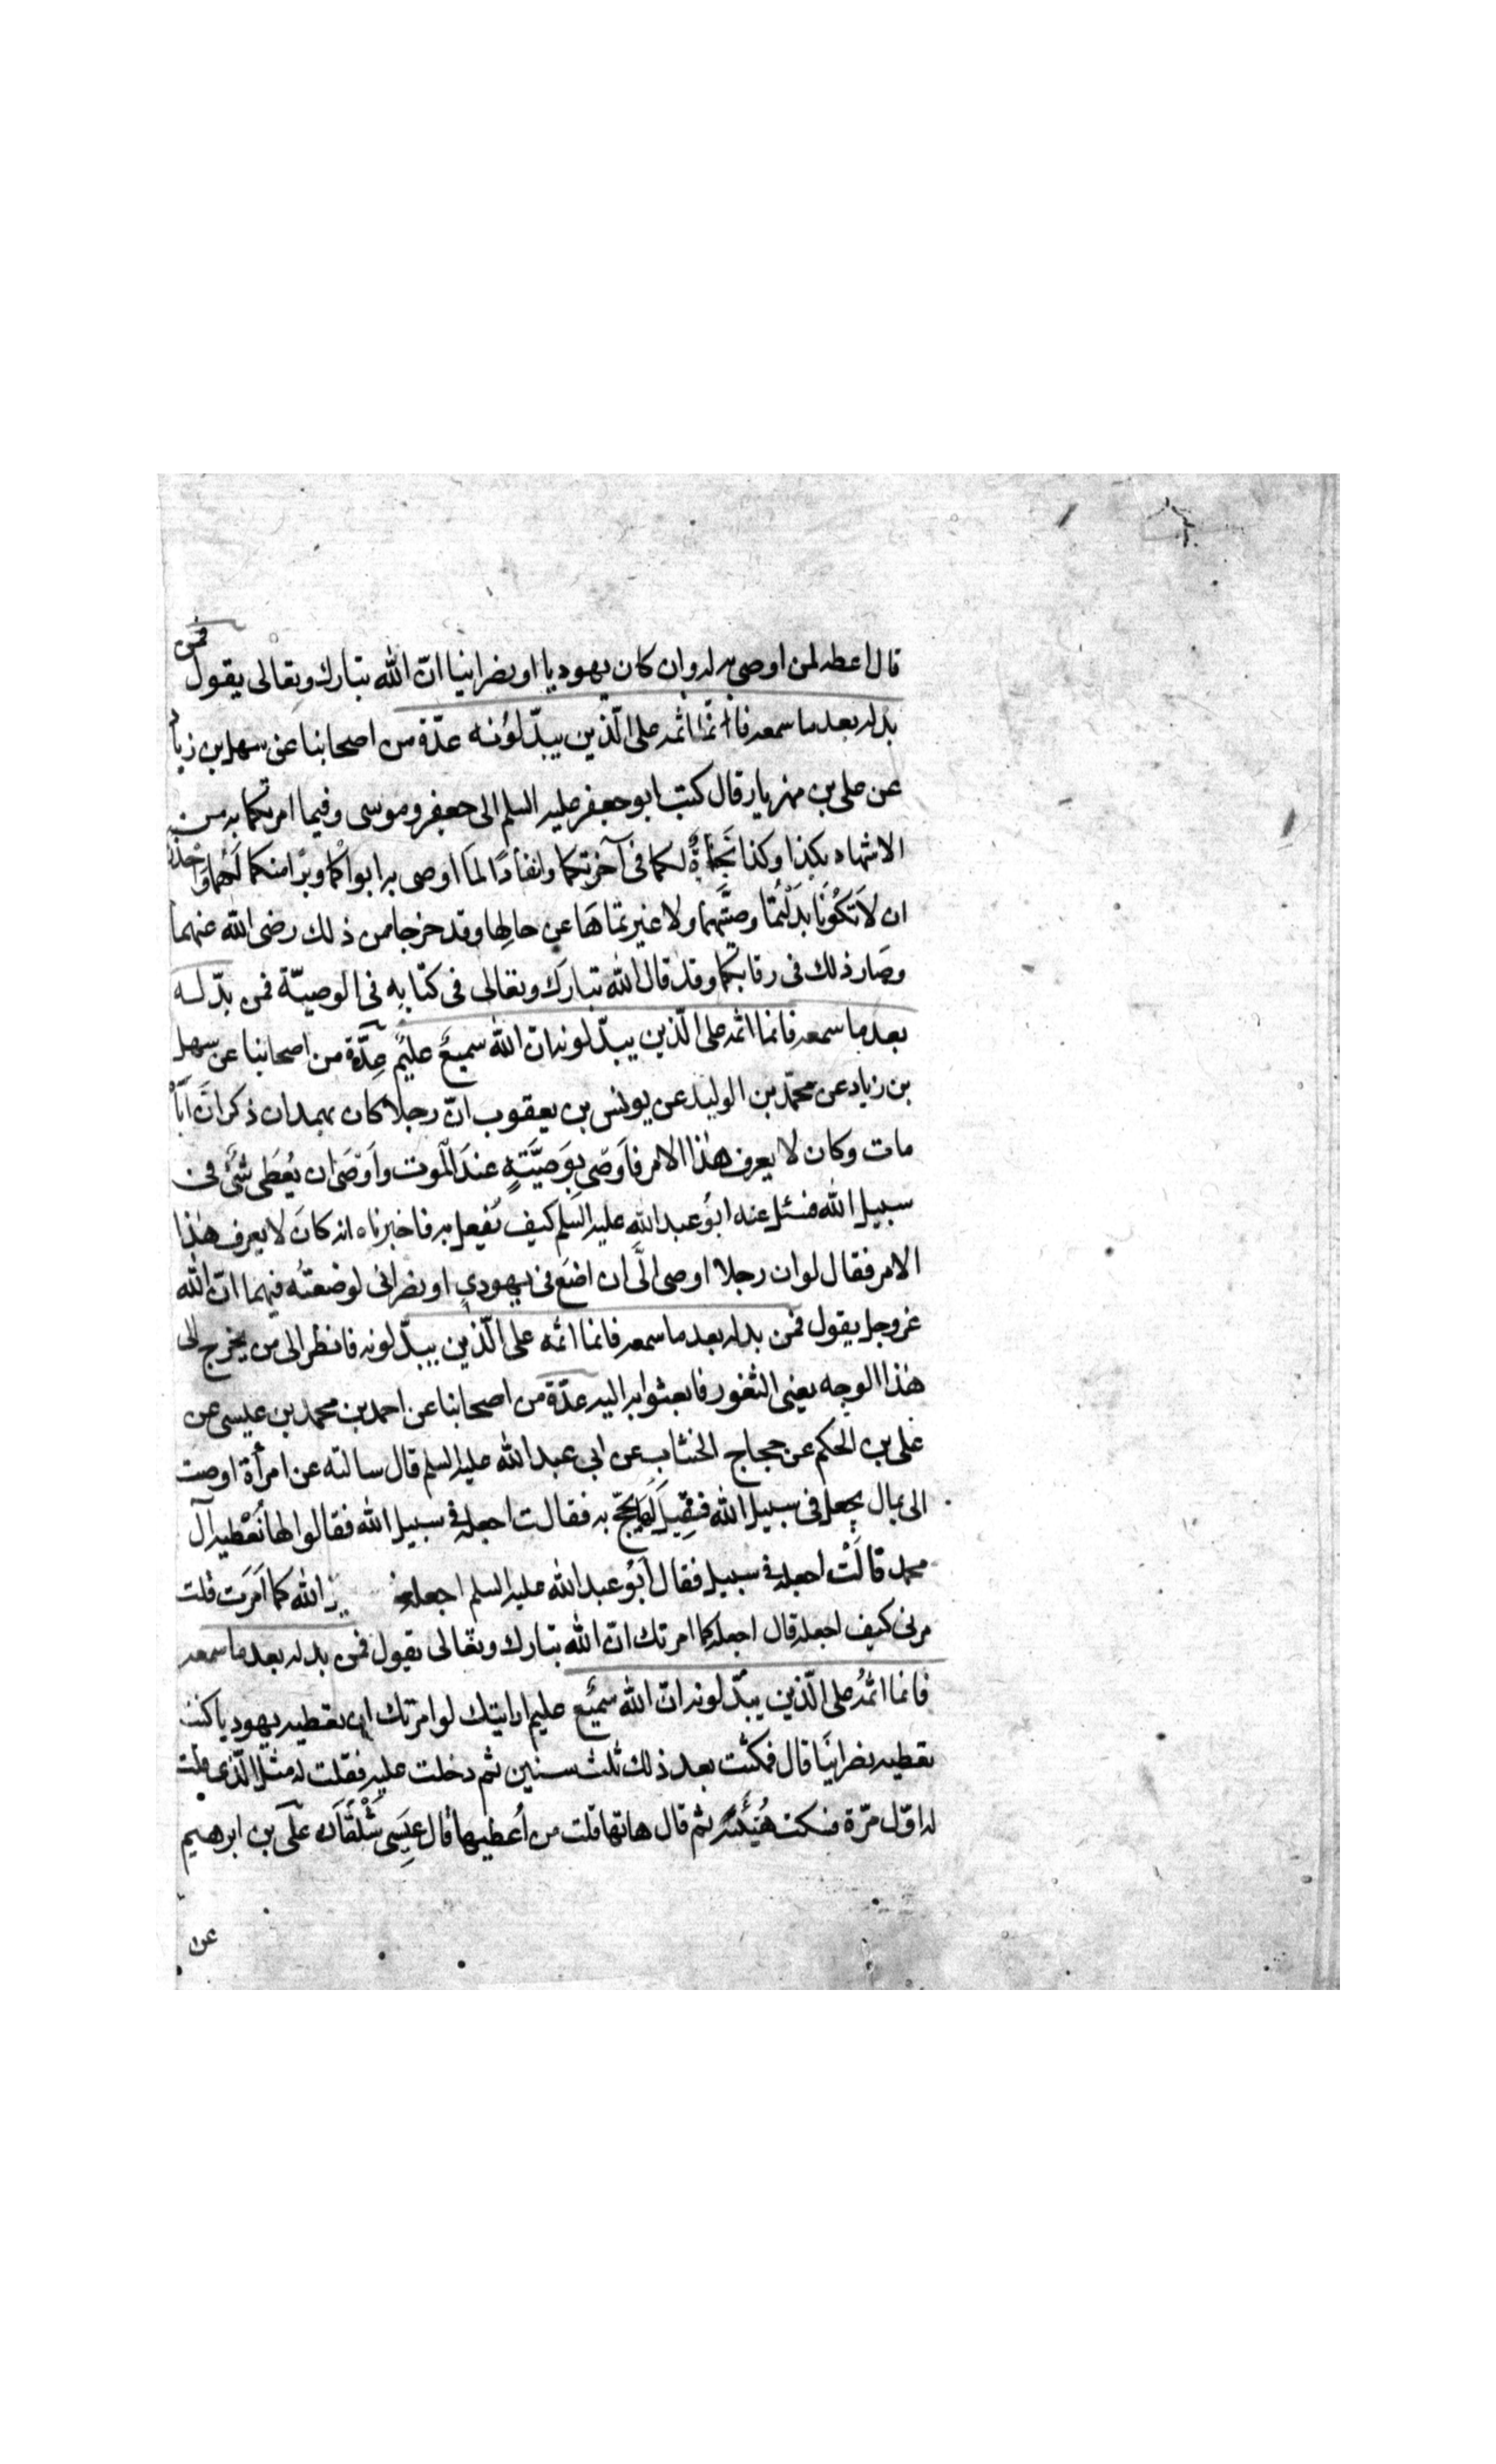 قال اعطه لمن اوصى به له وان كان يهوديا او نصرانيا انّ الله تبارك وتعالى يقول فمن
بدله بعد ما سمعه فانّما اثمه على الّذين يبدّلوُنه عدّة من اصحابنا عن سهل بن زياد
عن على بن مهزيار قال كتب ابو جعفر عليه السلم الى جعفر وموسى وفيما امرتكما به من
الاشهاد بكذا وكذا نَجَاةٌ لكما فى آخرتكما وانفاذًا لما اوصى به ابواكما وبرّا منكما لَهُما وَاحْذَرَا
ان لاَ تَكُونَا بَدَّلْتُمَا وصيَّتهما ولا غيرتماهَا عن حالها وقد خرجا من ذلك رضى الله عنهما
وصَار ذلك فى رقابكما وقد قال الله تبارَك وتعالى فى كتابِه فى الوصيّة فمن بدّله
بعد ما سمعه فانما اثمه على الّذين يبدّلونه انّ الله سميعٌ عليمٌ عِدَّة من اصحابنا عن سهل
بن زياد عن محمّد بن الوليد عن يونس بن يعقوب انّ رجلا كان بهمدان ذكر انّ اَبَاهُ
مات وكان لا يعرف هٰذا الامر فاَوصٰى بِوَصِيَّتِهٖ عندَ الْموت واَوْصٰى ان يُعْطٰى شَئٌ فى
سبيل الله فسئل عنه ابُو عبد الله عليه السلم كيف يُفعل به فاخبرناه انه كانَ لا يعرف هٰذا
الامر فقال لو ان رجلا اوصى الَىَّ ان اضَع فى يهودىٍ او نصرانى لوضعتُه فيهما انّ الله
عز وجل يقول فمن بدله بعد ما سمعه فانما اثمه على الّذين يبدّلونه فانظر الى من يخرج الى
هٰذا الوجه يعنى الثغور فابعثوا به اليه عدّة من اصحابنا عن احمد بن محمد بن عيسى عن
على بن الحكم عن حجاج الخشاب عن ابى عبد الله عليه السلم قال سالته عن امرأة اوصت
الى بمال يجعل فى سبيل الله فقِيلَ لَها يحجّ به فقالت اجعله فى سبيل الله فقالوا لها نُعْطيه آل
محمد قالَتْ اجعله فى سبيل فقال اَبُو عبد الله عليه السلم اجعله الله كما اَمَرَت قلت
مرنى كيف اجعله قال اجعله كما امرتك انّ الله تبارك وتعالى يقول فمن بدله بعد ما سمعه
فانما اثمُه على الّذين يبدّلونه انّ الله سميْع عليم ارايتك لو امرتك ان تعطيه يهوديا كنت
تعطيه نصرانيًا قال فمكثت بعد ذلك ثلث سنين ثم دخلت عليه فقلت له مثل الّذى قلت
له اوّل مرّة فسكت هُنَيْئَةً ثم قال هاتها قلت من اُعطيها قال عِيسَى شَلْقَان على بن ابرهيم
عن